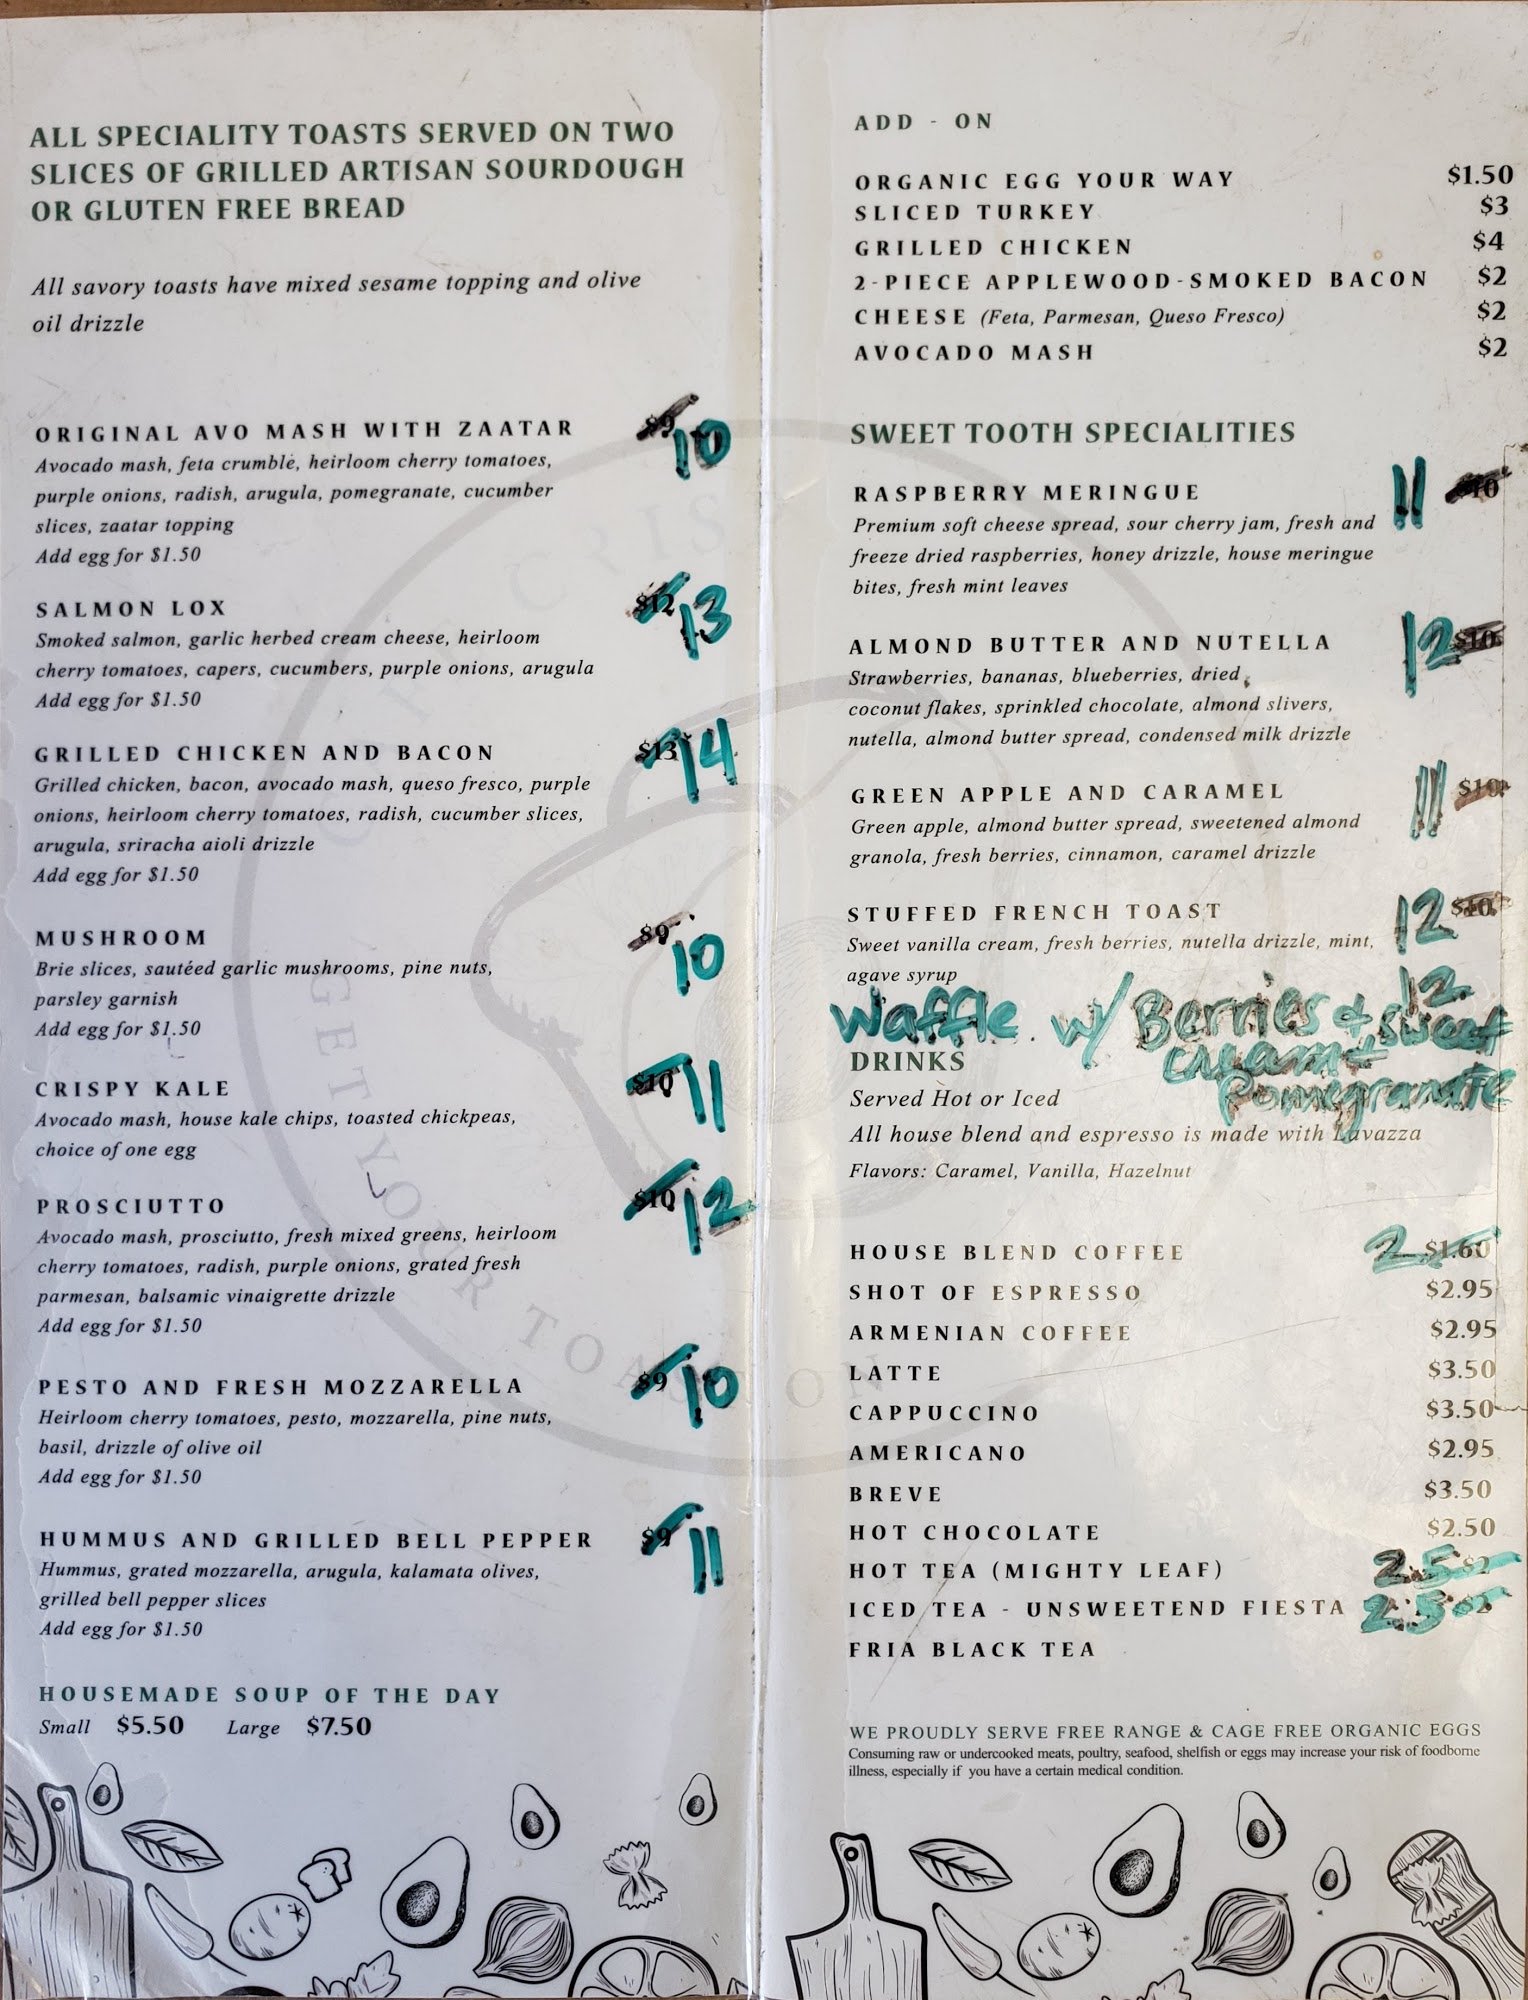 ALL SPECIALITY TOASTS SERVED ON TWO
SLICES OF GRILLED ARTISAN SOURDOUGH
OR GLUTEN FREE BREAD
All savory toasts have mixed sesame topping and olive
oil drizzle
ORIGINAL AVO MASH WITH ZAATAR $9 10
Avocado mash, feta crumble, heirloom cherry tomatoes,
purple onions, radish, arugula, pomegranate, cucumber
slices, zaatar topping
Add egg for $1.50
SALMON LOX $12 13
Smoked salmon, garlic herbed cream cheese, heirloom
cherry tomatoes, capers, cucumbers, purple onions, arugula
Add egg for $1.50
GRILLED CHICKEN AND BACON $13 14
Grilled chicken, bacon, avocado mash, queso fresco, purple
onions, heirloom cherry tomatoes, radish, cucumber slices,
arugula, sriracha aioli drizzle
Add egg for $1.50
MUSHROOM $9 10
Brie slices, sautéed garlic mushrooms, pine nuts,
parsley garnish
Add egg for $1.50
CRISPY KALE $10 11
Avocado mash, house kale chips, toasted chickpeas,
choice of one egg
PROSCIUTTO $10 12
Avocado mash, prosciutto, fresh mixed greens, heirloom
cherry tomatoes, radish, purple onions, grated fresh
parmesan, balsamic vinaigrette drizzle
Add egg for $1.50
PESTO AND FRESH MOZZARELLA $9 10
Heirloom cherry tomatoes, pesto, mozzarella, pine nuts,
basil, drizzle of olive oil
Add egg for $1.50
HUMMUS AND GRILLED BELL PEPPER $9 11
Hummus, grated mozzarella, arugula, kalamata olives,
grilled bell pepper slices
Add egg for $1.50
HOUSEMADE SOUP OF THE DAY
Small $5.50 Large $7.50
GET YOUR TOAST ON
ADD - ON
ORGANIC EGG YOUR WAY $1.50
SLICED TURKEY $3
GRILLED CHICKEN $4
2-PIECE APPLEWOOD-SMOKED BACON $2
CHEESE (Feta, Parmesan, Queso Fresco) $2
AVOCADO MASH $2
SWEET TOOTH SPECIALITIES
RASPBERRY MERINGUE 11 $10
Premium soft cheese spread, sour cherry jam, fresh and
freeze dried raspberries, honey drizzle, house meringue
bites, fresh mint leaves
ALMOND BUTTER AND NUTELLA 12 $10
Strawberries, bananas, blueberries, dried
coconut flakes, sprinkled chocolate, almond slivers,
nutella, almond butter spread, condensed milk drizzle
GREEN APPLE AND CARAMEL 11 $10
Green apple, almond butter spread, sweetened almond
granola, fresh berries, cinnamon, caramel drizzle
STUFFED FRENCH TOAST 12 $10
Sweet vanilla cream, fresh berries, nutella drizzle, mint,
agave syrup
12
Waffle w/ Berries & sweet
cream +
Pomegranate
DRINKS
Served Hot or Iced
All house blend and espresso is made with Lavazza
Flavors: Caramel, Vanilla, Hazelnut
HOUSE BLEND COFFEE 2 $1.60
SHOT OF ESPRESSO $2.95
ARMENIAN COFFEE $2.95
LATTE $3.50
CAPPUCCINO $3.50
AMERICANO $2.95
BREVE $3.50
HOT CHOCOLATE $2.50
HOT TEA (MIGHTY LEAF) 2.5 $2
ICED TEA - UNSWEETEND FIESTA 2.5 $2
FRIA BLACK TEA
WE PROUDLY SERVE FREE RANGE & CAGE FREE ORGANIC EGGS
Consuming raw or undercooked meats, poultry, seafood, shelfish or eggs may increase your risk of foodborne
illness, especially if you have a certain medical condition.